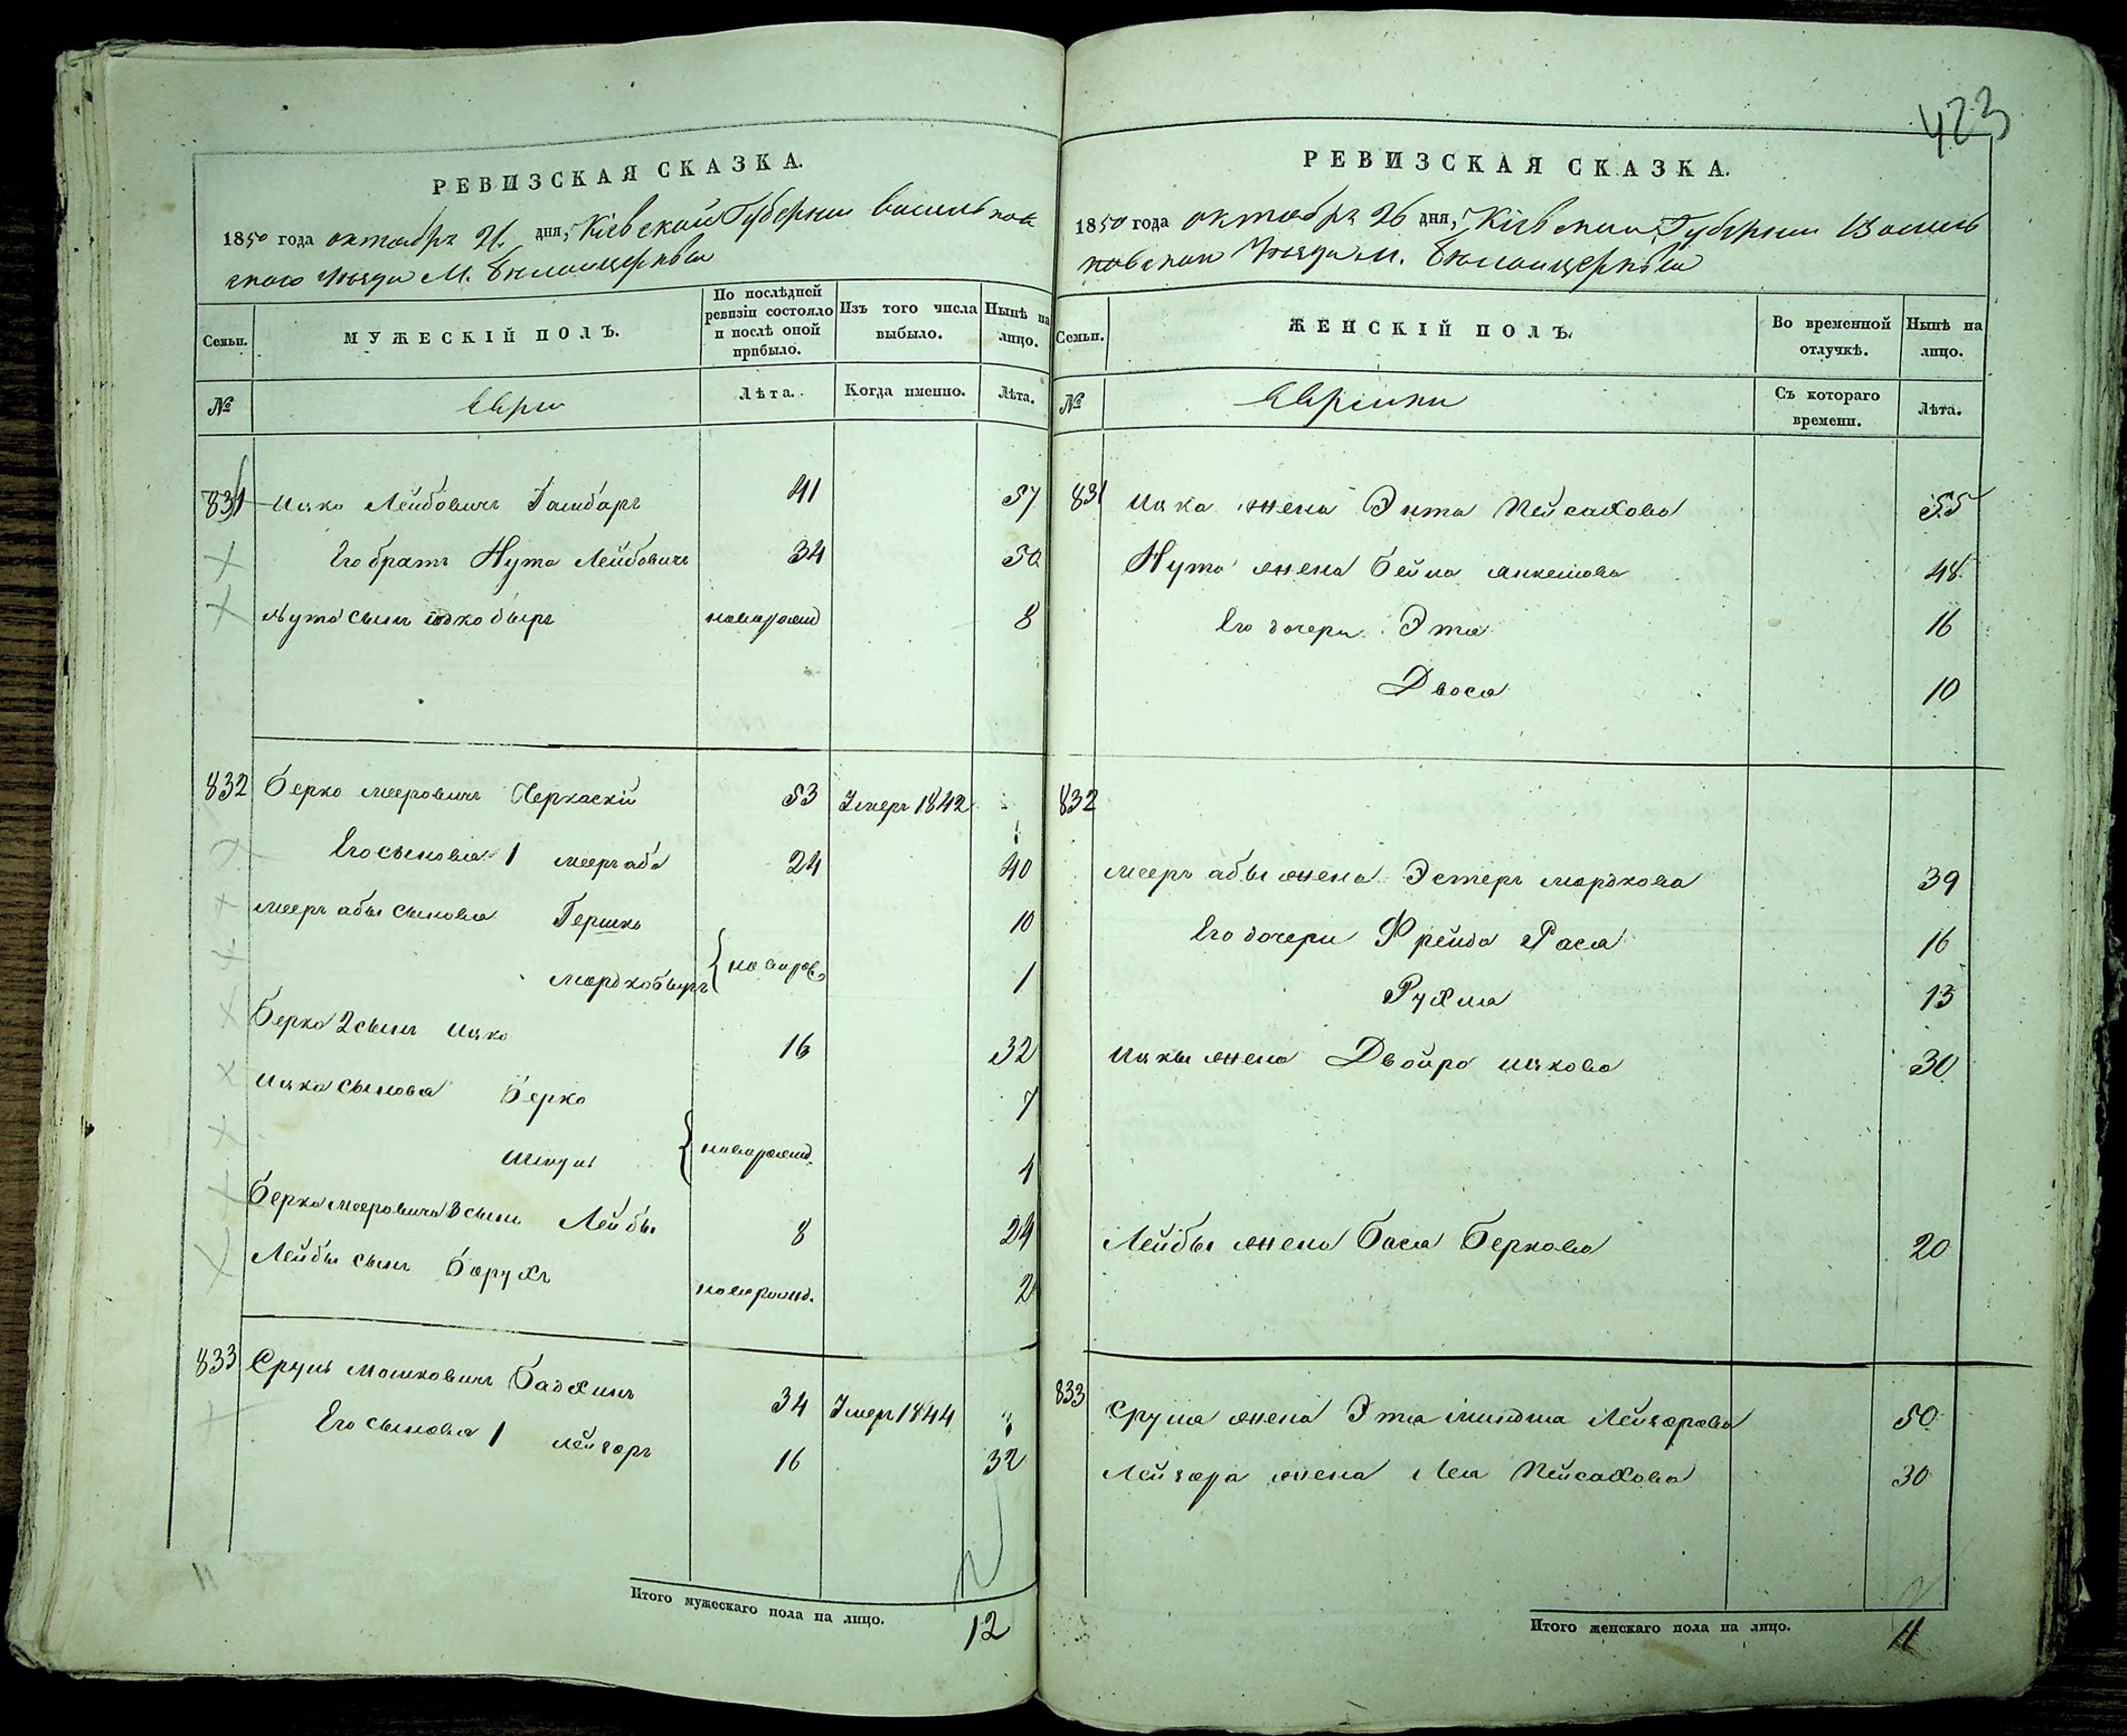 423
РЕВИЗСКАЯ СКАЗКА.
1850 года октября 26 дня, Кіевской Губерніи Василь ков
скаго Уезда М. Белоицерквы
Семьи.
МУЖЕСКІЙ ПОЛЪ.
По послѣдней ревизіи состояло и послѣ оной прибыло.
Изъ того числа выбыло.
Нынѣ на лицо.
№
Евреи
Лѣта.
Когда именно.
Лѣта.
831 Ицко Лейбовичъ 41 57
Его братъ Нута Лейбовичъ 34 50
Нута сынъ новорожд 8
832 Берко Мееровичъ Черкаскій 53 Умеръ 1842
Его сыновья 1 Мееръ аба 24 40
Мееръ абы сыновья Гершко 10
Мордко новорож 1
Берко 2 сынъ Ицко 16 32
Ицка сыновья Берко 7
Шмуль новорожд. 4
Берка Мееровича 3 сынъ Лейбы 8 24
Лейбы сынъ Борухъ новорожд. 2
833 Сруль Мошковичъ Бадхинъ 34 Умеръ 1844
Его сыновья 1 Лейзоръ 16 32
Итого мужескаго пола на лицо. 12
РЕВИЗСКАЯ СКАЗКА.
1850 года октября 26 дня, Кіевской Губерніи Василь
ковскаго Уезда М. Белоицерквы
Семьи.
ЖЕНСКІЙ ПОЛЪ.
Во временной отлучкѣ.
Нынѣ на лицо.
№
Еврейки
Съ котораго времени.
Лѣта.
831 Ицка жена Энта Пейсахова 55
Нута жена Бейла Янкелова 48
Его дочери Эта 16
Двося 10
832
Мееръ абы жена Эстеръ Мордкова 39
Его дочери Фрейда Рася 16
Рухля 13
Ицки жена Двойра Ицкова 30
Лейбы жена Бася Беркова 20
833 Сруля жена Эта Миндля Лейзорова 50
Лейзора жена Лея Пейсахова 30
Итого женскаго пола на лицо. 11